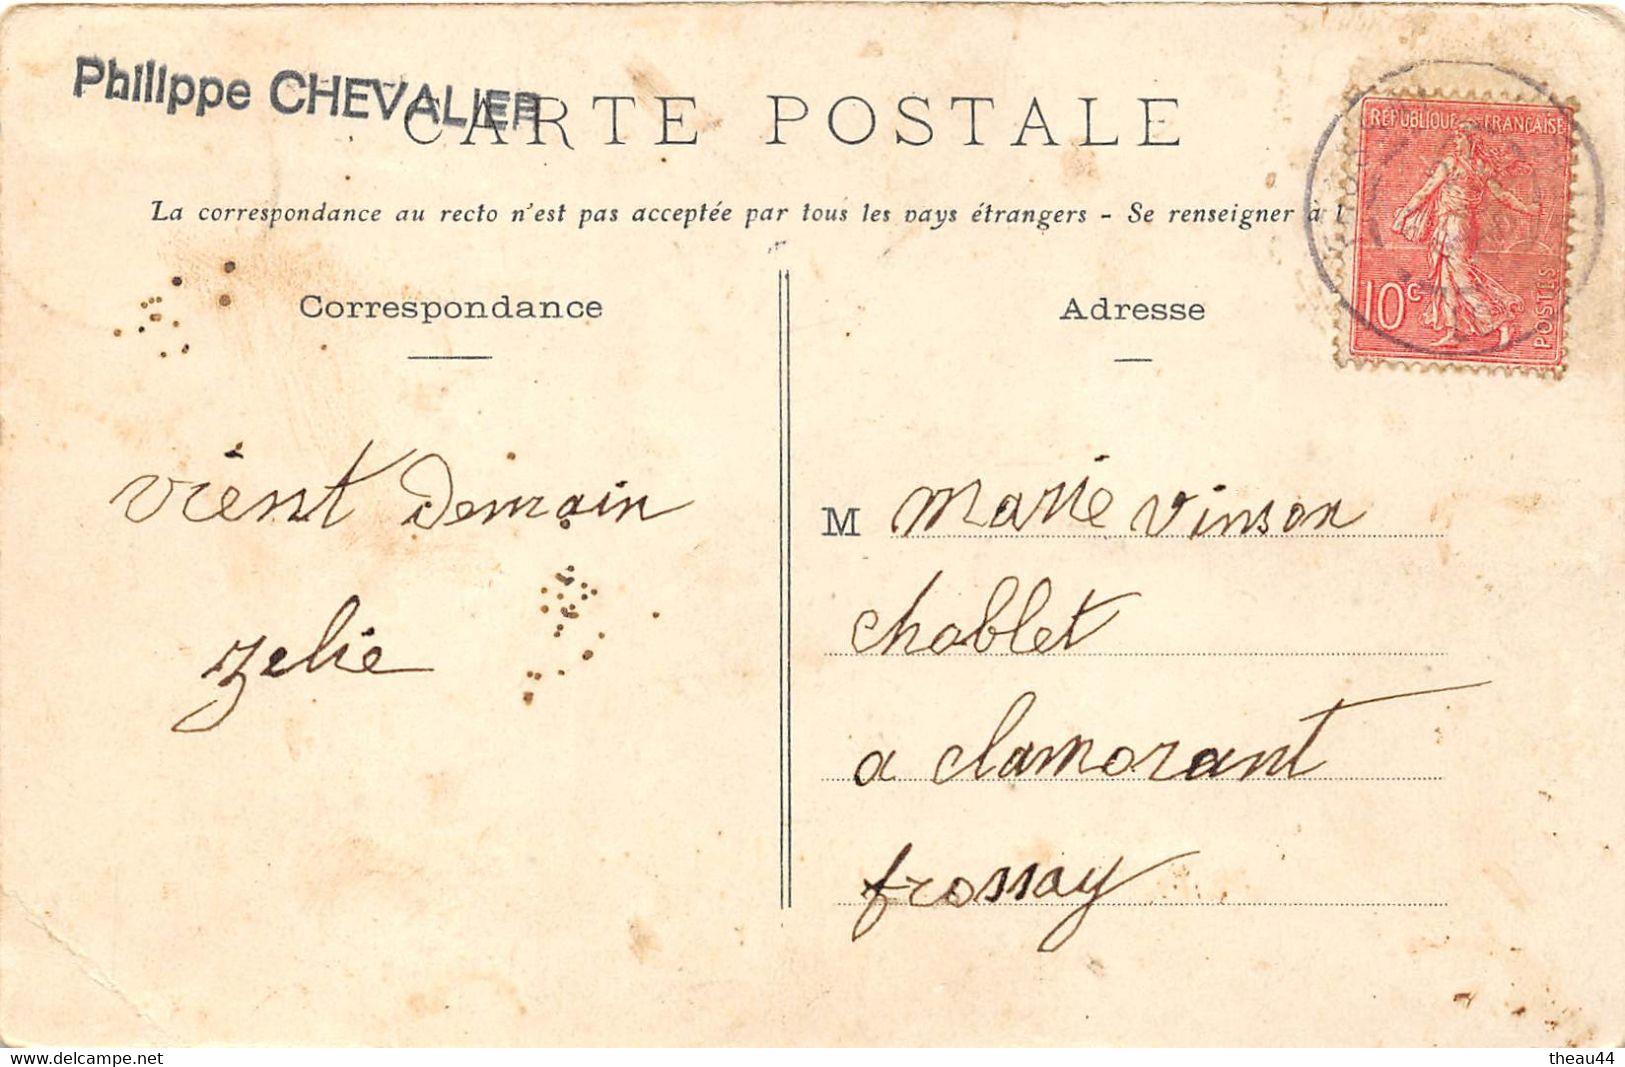 Philippe CHEVALIER
CARTE POSTALE
La correspondance au recto n'est pas acceptée par tous les pays étrangers - Se renseigner à l
RÉPUBLIQUE FRANÇAISE
10c
POSTES
Correspondance
Adresse
vient Demain
zelie
M marie vinson
chablet
a clamorant
frossay
www.delcampe.net
theau44